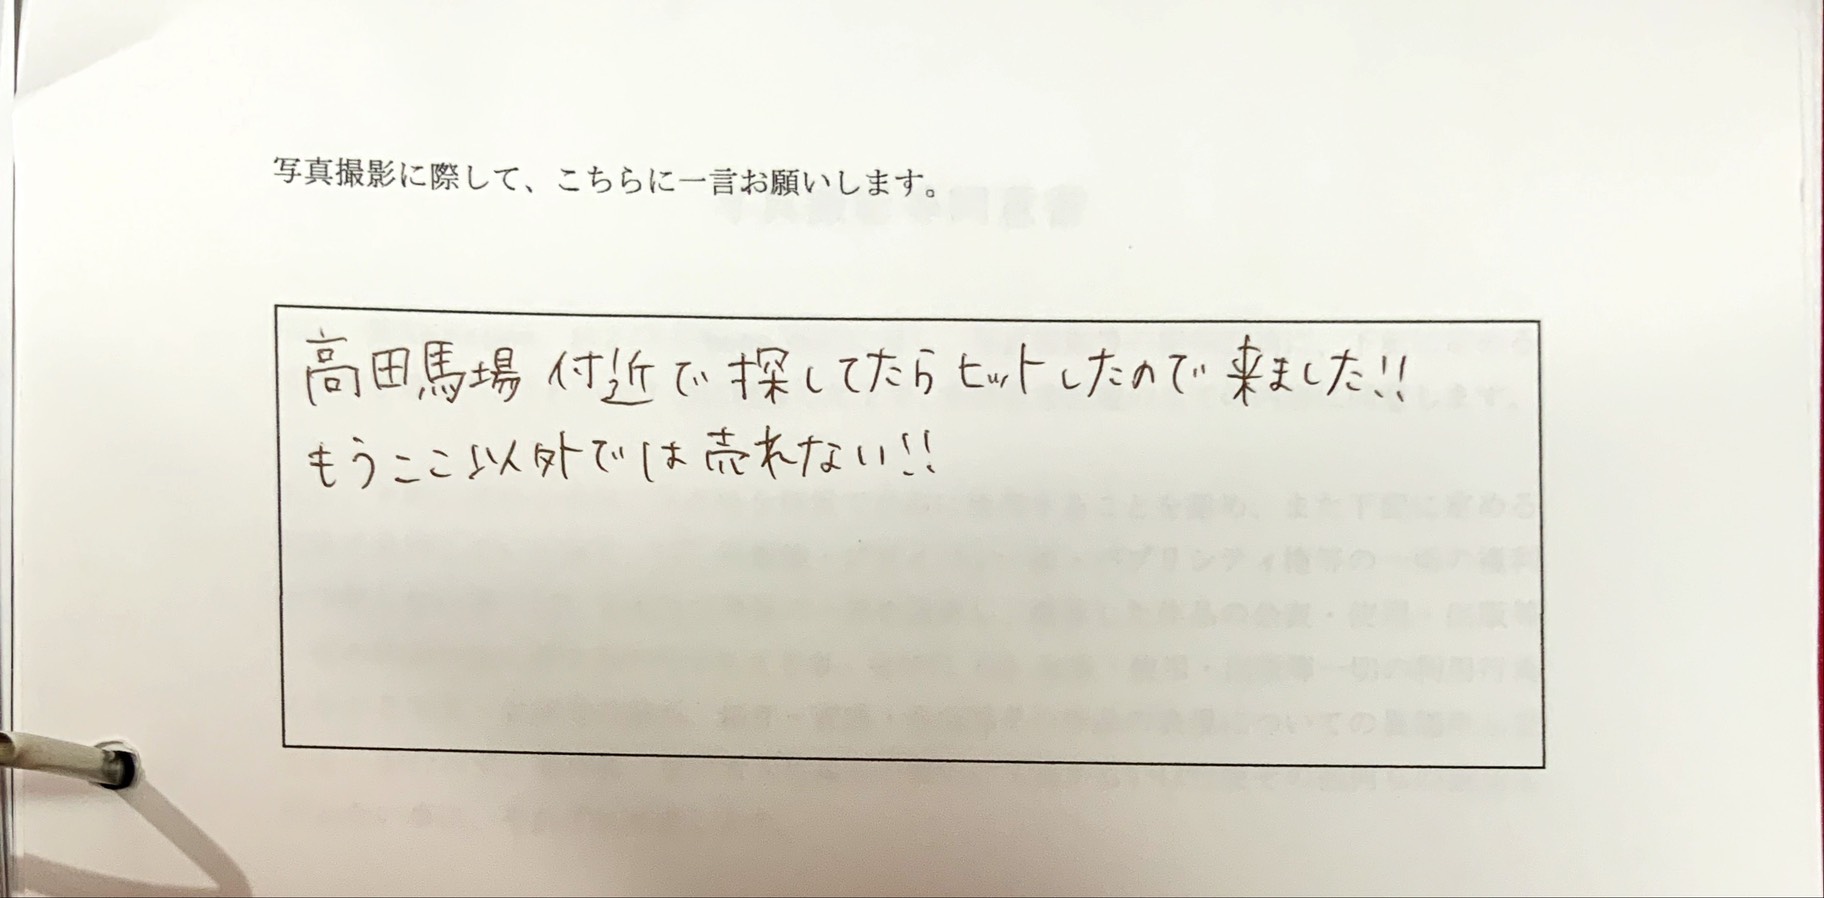 写真撮影に際して、こちらに一言お願いします。
高田馬場付近で探してたらヒットしたので来ました!!
もうここ以外では売れない!!